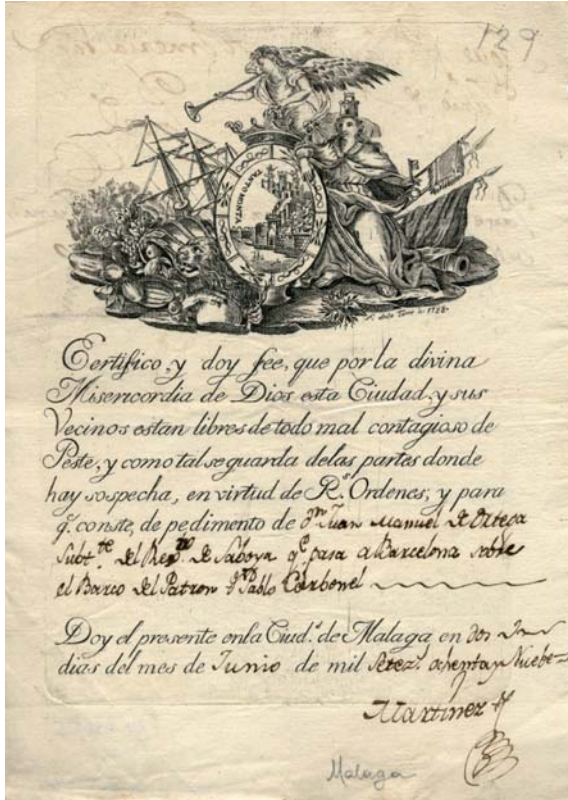 129
TANTO MONTA
1788
Certifico, y doy fee, que por la divina
Misericordia de Dios esta Ciudad, y sus
Vecinos estan libres de todo mal contagioso de
Peste, y como tal se guarda delas partes donde
hay sospecha, en virtud de R.s Ordenes, y para
q.e conste, de pedimento de D.n Juan Manuel de Ortega
Subt.te del Reg.to de Saboya q.e pasa a Barcelona sobre
el Barco del Patron Pablo Carbonel
Doy el presente en la Ciud.d de Malaga en dos
dias del mes de Junio de mil Setez.s ochenta y Nuebe
Martinez
Malaga